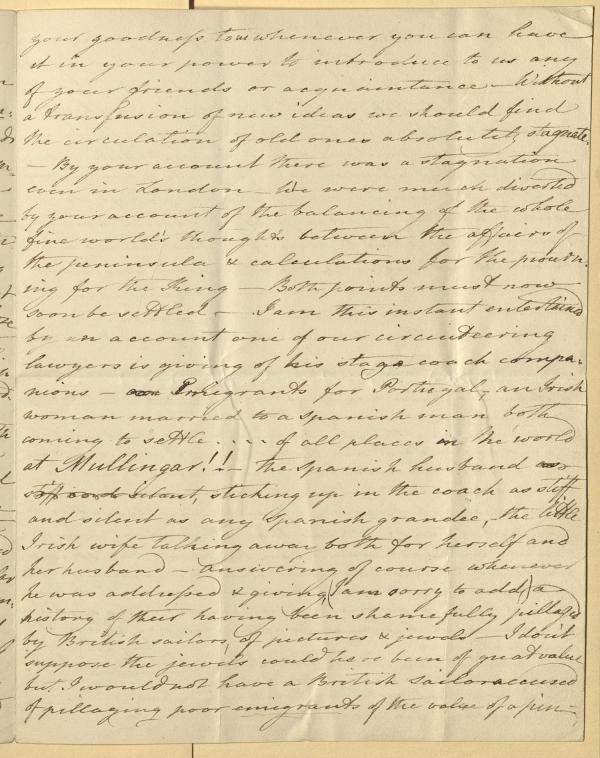 your goodness to us whenever you can have
it in your power to introduce to us any
of your friends or acquaintance – Without
a transfusion of new ideas we should find
the circulation of old ones absolutely stagnate.
– By your account there was a stagnation
even in London – We were much diverted
by your account of the balancing of the whole
fine world's thoughts between the affairs of
the peninsula & calculations for the mourn-
ing for the King – Both points must now
soon be settled – I am this instant entertained
by an account one of our circuiteering
lawyers is giving of his stage coach compa-
nions – Emigrants for Portugal, an Irish
woman married to a spanish man both
coming to settle . . . . of all places in the world
at Mullingar!! – the spanish husband
silent, sticking up in the coach as stiff
and silent as any Spanish grandee, the little
Irish wife talking away both for herself and
her husband – answering of course whenever
he was addressed & giving (I am sorry to add) a
history of their having been shamefully pillaged
by British sailors, of pictures & jewels – I don't
suppose the jewels could have been of great value
but I would not have a British sailor accused
of pillaging poor emigrants of the value of a pin –